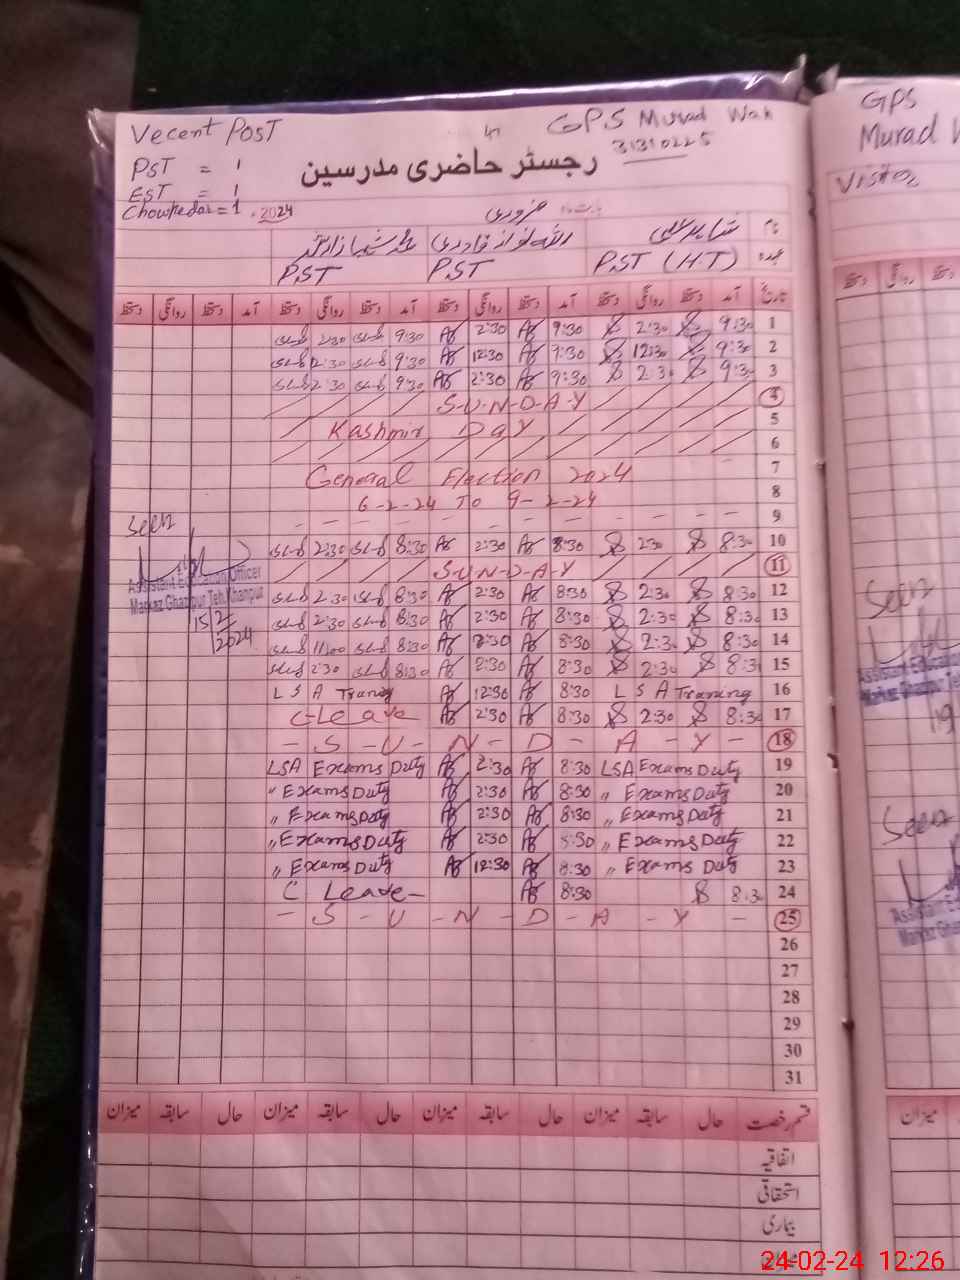 Vecent PosT
GPS Murad Wah
31310225
PST = 1
EST = 1
Chowkedar = 1
رجسٹر حاضری مدرسین
فروری 2024
نام
عہدہ PST (HT) PST PST
تاریخ آمد دستخط روانگی دستخط آمد دستخط روانگی دستخط آمد دستخط روانگی دستخط آمد دستخط روانگی دستخط
2:30 9:30 2:30 9:30 2:30 9:30 1
12:30 9:30 12:30 9:30 12:30 9:30 2
2:30 9:30 2:30 9:30 2:30 9:30 3
S-U-N-D-A-Y 4
Kashmir Day 5
6
General Election 2024 7
6-2-24 To 9-2-24 8
9
Seen
2:30 8:30 2:30 8:30 2:30 8:30 10
S-U-N-D-A-Y 11
Assistant Education Officer
Markaz Ghazipur Teh. Khanpur
15/2/2024
2:30 8:30 2:30 8:30 2:30 8:30 12
2:30 8:30 2:30 8:30 2:30 8:30 13
11:00 8:30 2:30 8:30 2:30 8:30 14
2:30 8:30 2:30 8:30 2:30 8:30 15
L S A Traning 12:30 8:30 L S A Traning 16
C-Leave 2:30 8:30 2:30 8:30 17
- S - U - N - D - A - Y - 18
LSA Exams Duty 2:30 8:30 LSA Exams Duty 19
" Exams Duty 2:30 8:30 " Exams Duty 20
" Exams Duty 2:30 8:30 " Exams Duty 21
" Exams Duty 2:30 8:30 " Exams Duty 22
" Exams Duty 12:30 8:30 " Exams Duty 23
C Leave - 8:30 8:30 24
- S - U - N - D - A - Y - 25
26
27
28
29
30
31
قسم رخصت حال سابقہ میزان حال سابقہ میزان حال سابقہ میزان حال سابقہ میزان
اتفاقیہ
استحقاقی
بیماری
GPS
Murad
Visitor
دستخط روانگی
Seen
Assistant Education
Markaz Ghazipur Teh
19
Seen
Assistant E
Markaz Gha
میزان
24-02-24 12:26